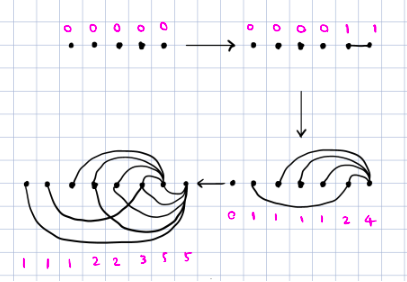 0 0 0 0 0
0 0 0 0 1 1
0 1 1 1 1 2 4
1 1 1 2 2 3 5 5